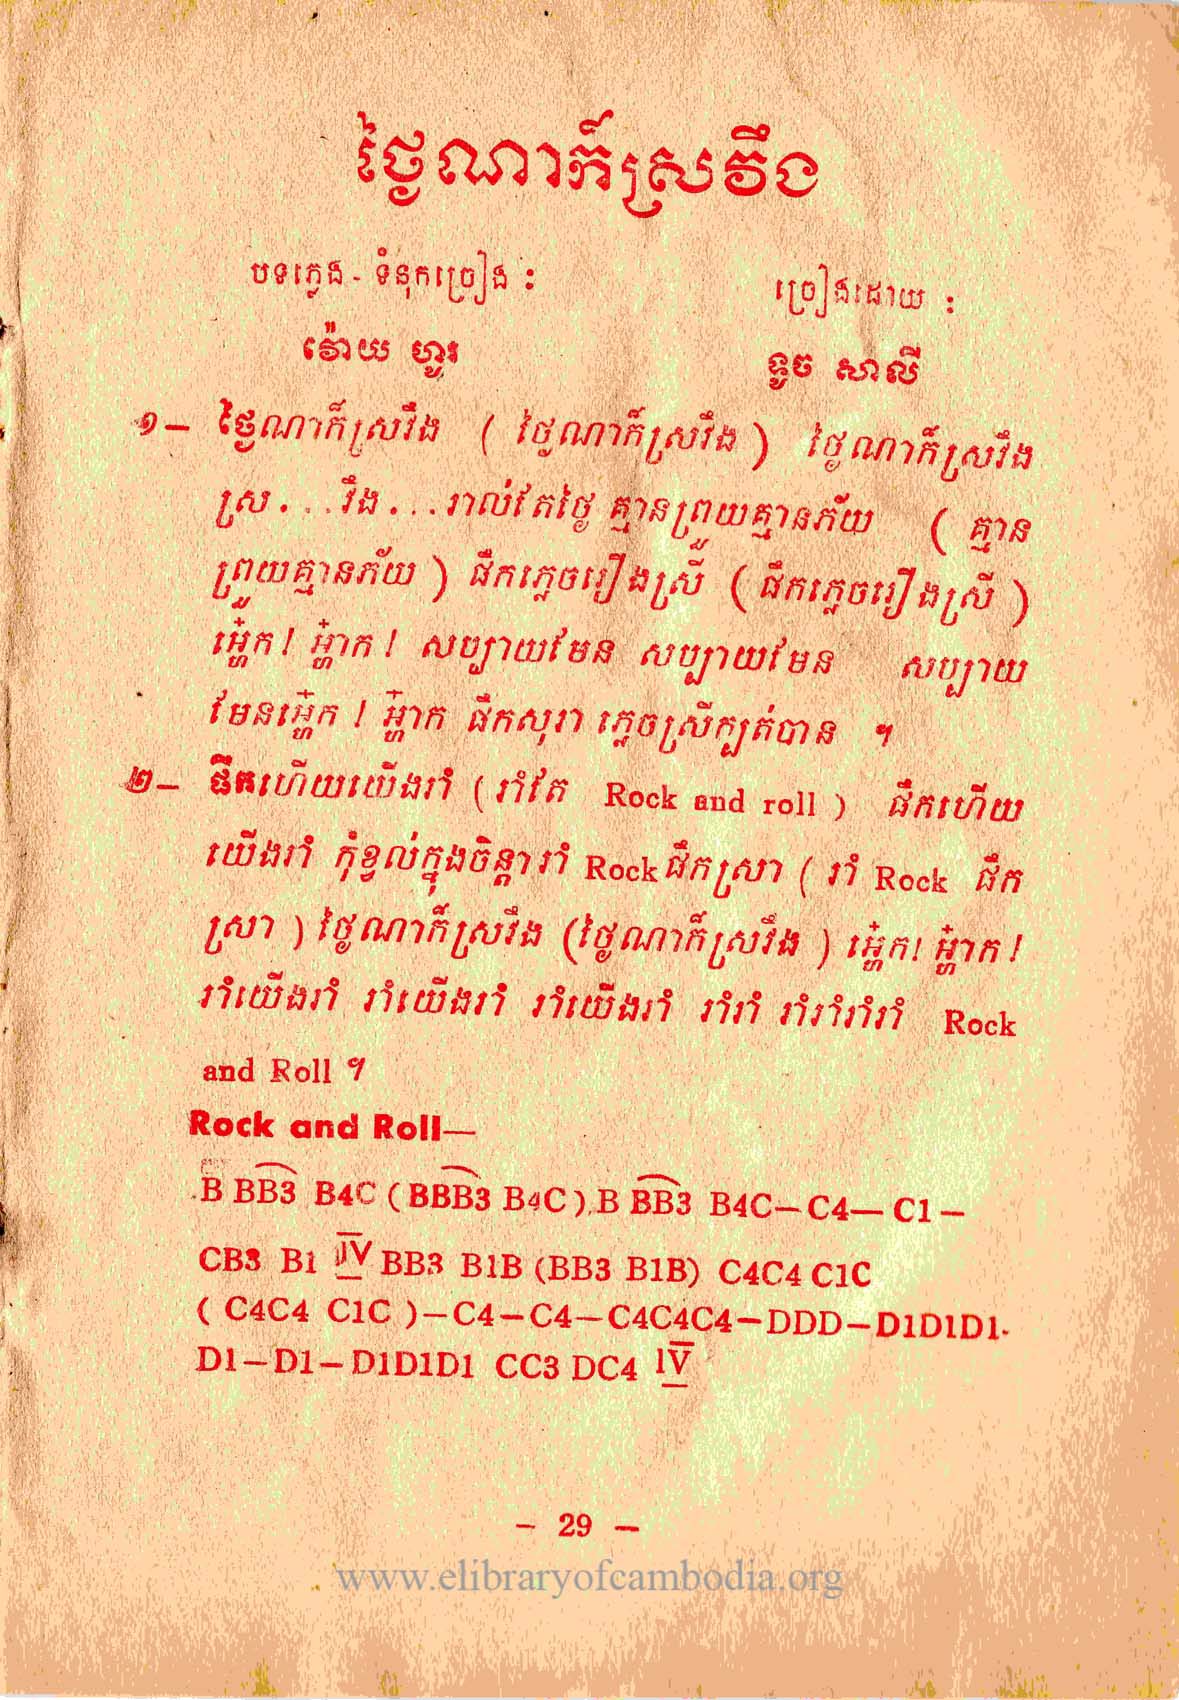 ថ្ងៃណាក៏ស្រវឹង
បទភ្លេង - ទំនុកច្រៀង : ច្រៀងដោយ :
វ៉ោយ ហូរ ទូច សាលី
១– ថ្ងៃណាក៏ស្រវឹង ( ថ្ងៃណាក៏ស្រវឹង ) ថ្ងៃណាក៏ស្រវឹង
ស្រ . . . វឹង . . . រាល់តែថ្ងៃ គ្មានព្រួយគ្មានភ័យ ( គ្មាន
ព្រួយគ្មានភ័យ ) ផឹកភ្លេចរឿងស្រី ( ផឹកភ្លេចរឿងស្រី )
អ្ហែ៎ក ! អ្ហ៎ាក ! សប្បាយមែន សប្បាយមែន សប្បាយ
មែនអ្ហែ៎ក ! អ្ហ៎ាក ផឹកសុរា ភ្លេចស្រីក្បត់បាន ។
២– ផឹកហើយយើងរាំ ( រាំតែ Rock and roll ) ផឹកហើយ
យើងរាំ កុំខ្វល់ក្នុងចិន្តា រាំ Rock ផឹកស្រា ( រាំ Rock ផឹក
ស្រា ) ថ្ងៃណាក៏ស្រវឹង (ថ្ងៃណាក៏ស្រវឹង ) អ្ហែ៎ក! អ្ហ៎ាក !
រាំយើងរាំ រាំយើងរាំ រាំយើងរាំ រាំរាំ រាំរាំរាំរាំ Rock
and Roll ។
Rock and Roll—
B BB3 B4C ( BBB3 B4C ), B BB3 B4C — C4 — C1 —
CB3 B1 IV BB3 B1B (BB3 B1B) C4C4 C1C
( C4C4 C1C ) — C4 — C4 — C4C4C4 — DDD — D1D1D1-
D1 — D1 — D1D1D1 CC3 DC4 IV
– 29 –
www.elibraryofcambodia.org